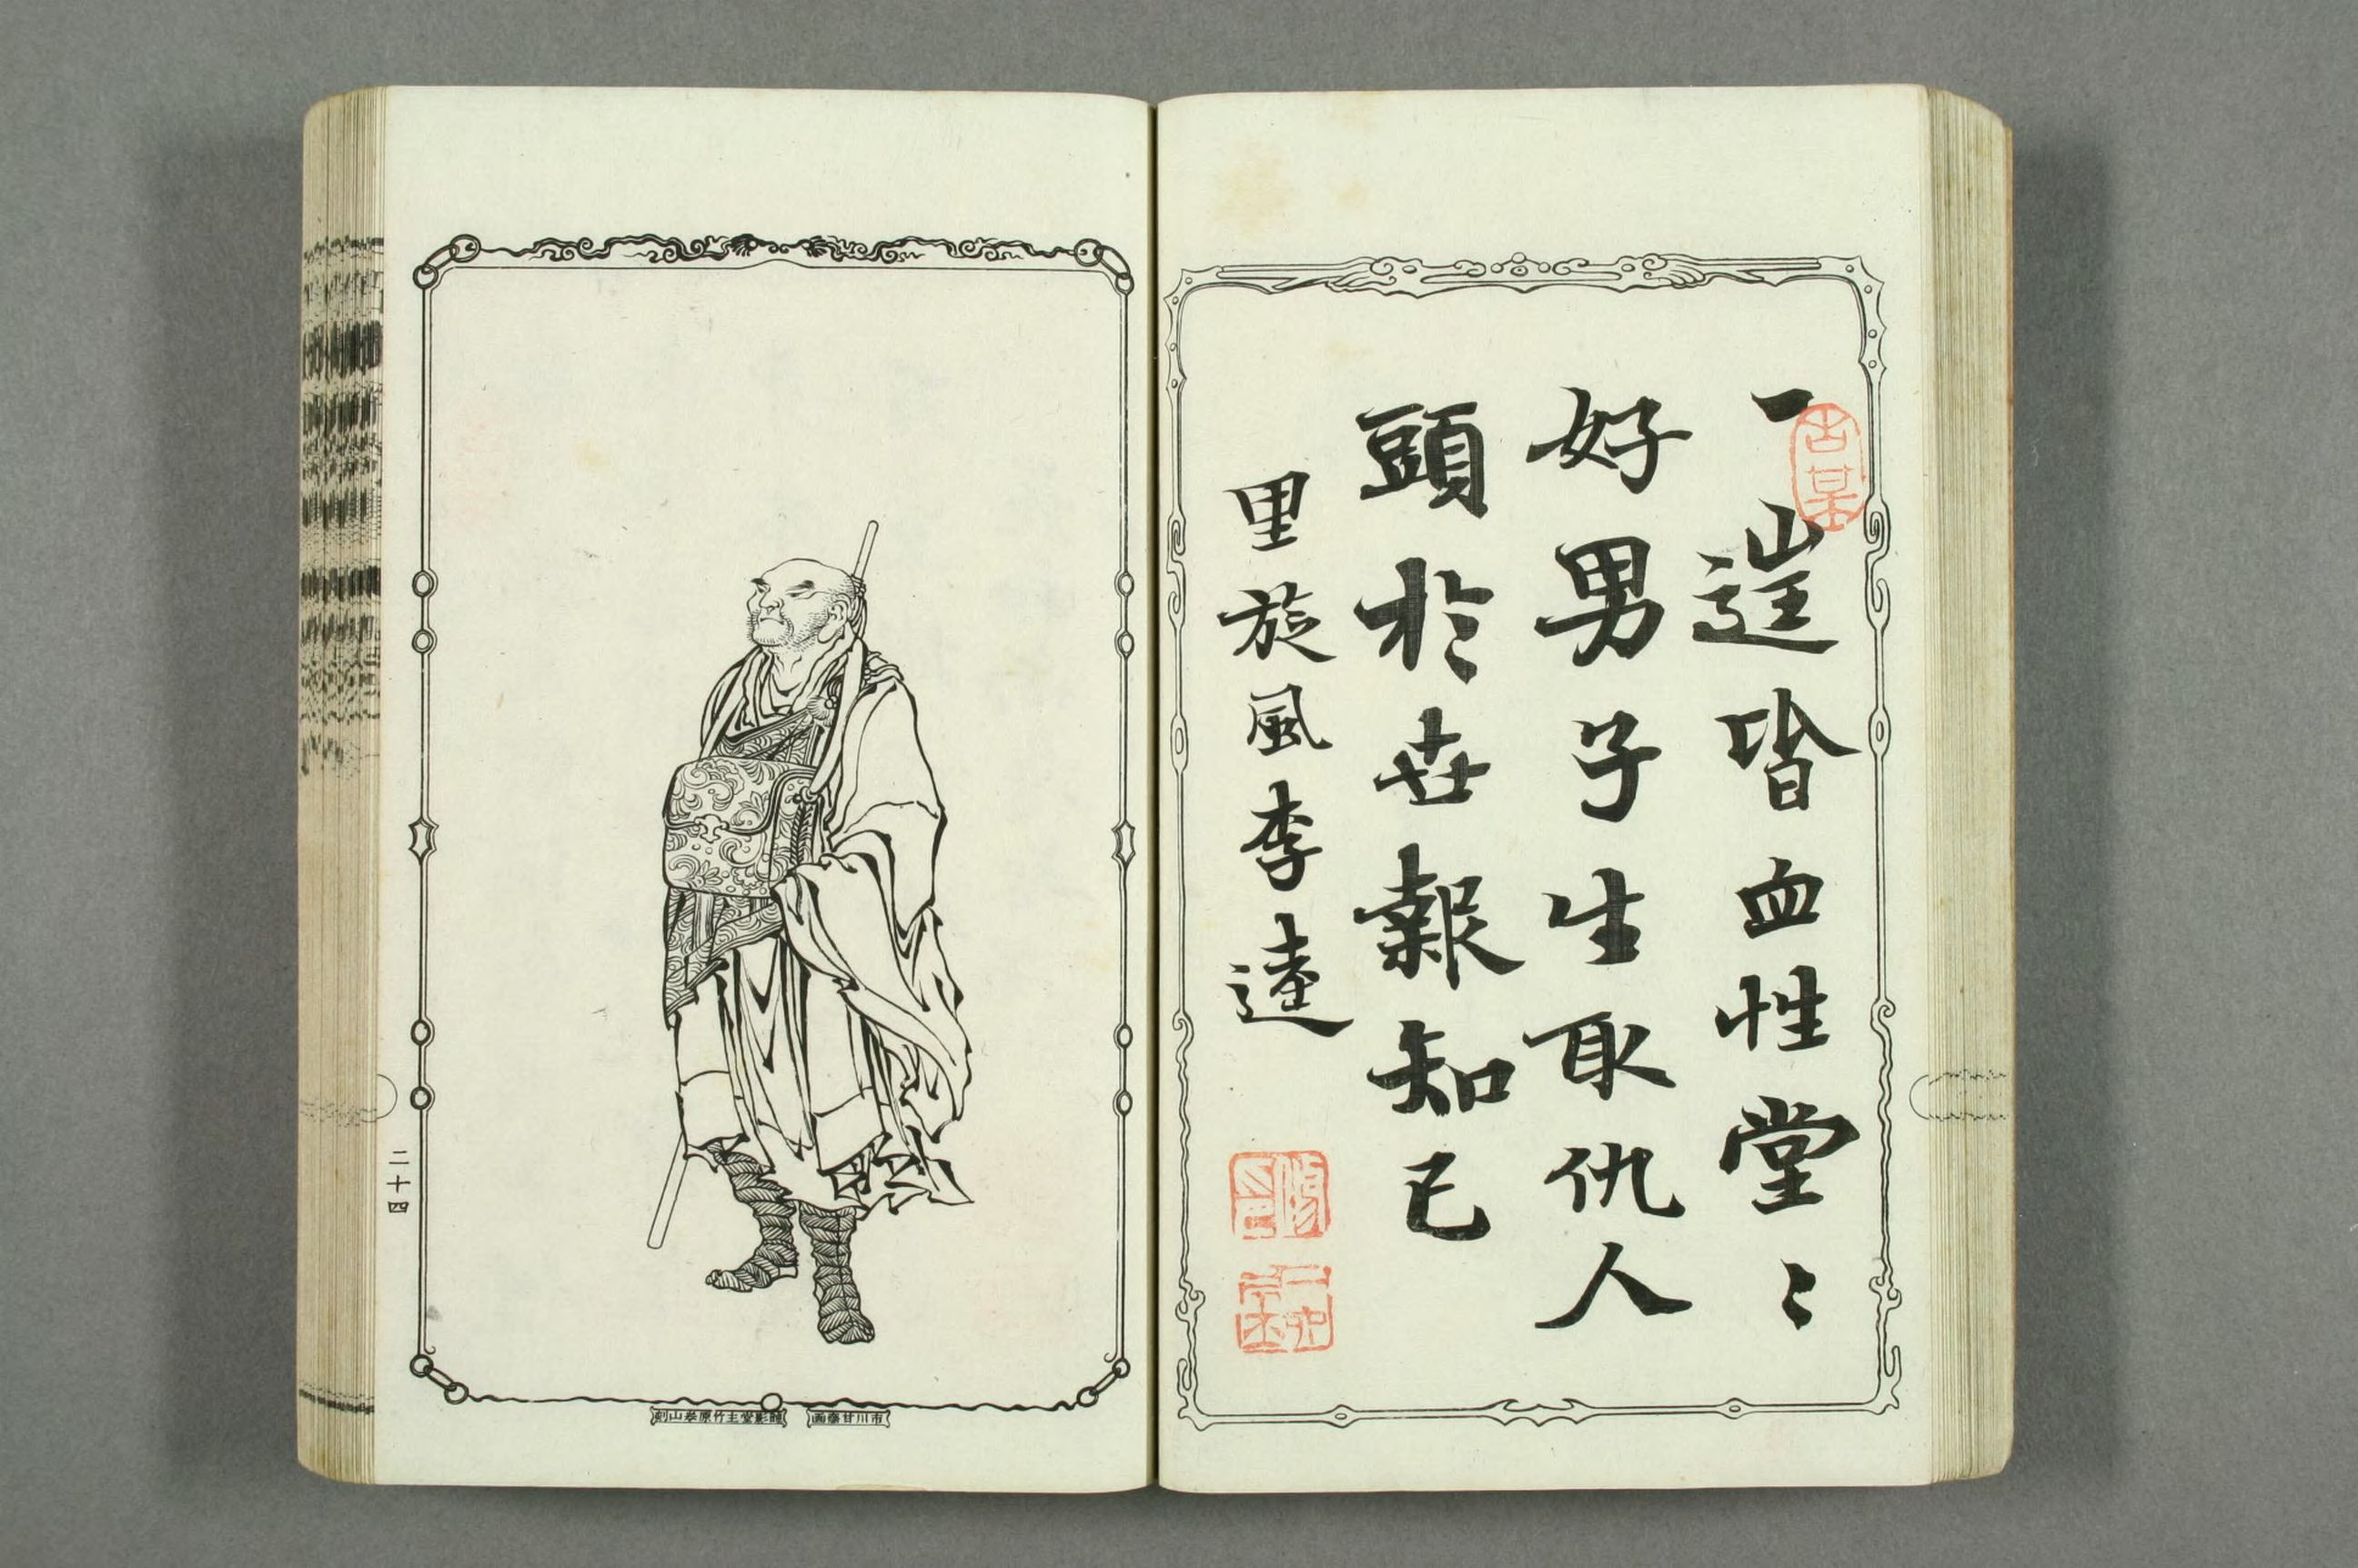 古某
一往皆血性堂〻
好男子生取仇人
頭於世報知己
里旋風李逵
二十四
市川甘齋画
影堂主竹原山刻